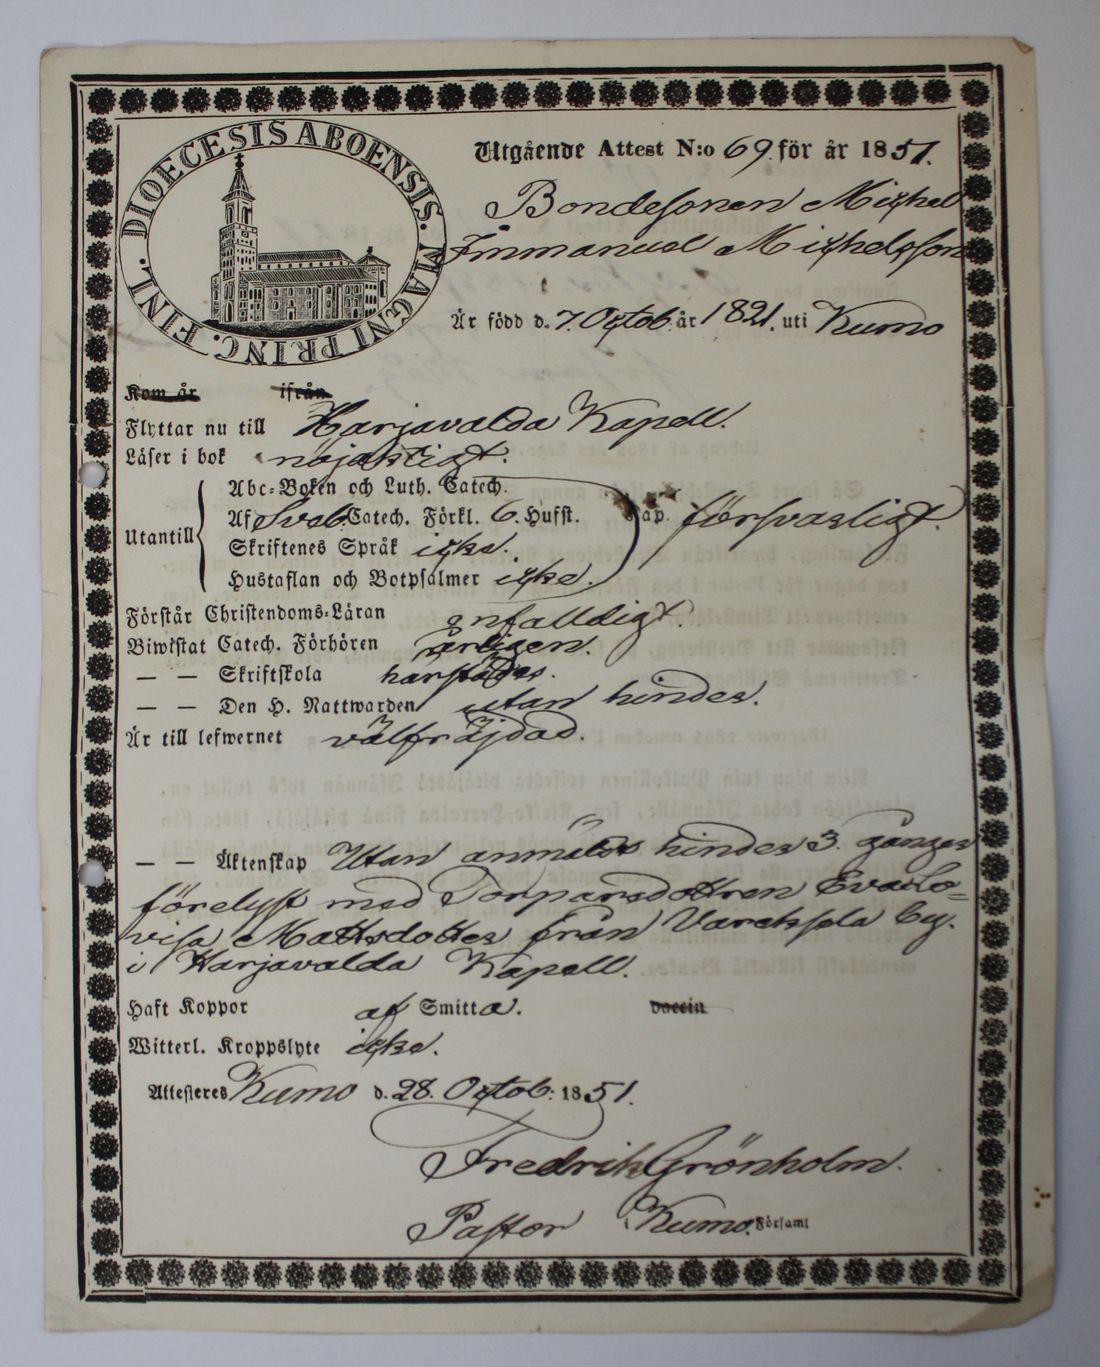 DIOECESIS ABOENSIS. MAGNI PRINC. FINL.
Utgående Attest N:o 69 för år 1851.
Bondesonen Michel
Immanuel Michelsson
Är född d. 7. Octob. år 1821. uti Kumo
Kom år ifrån
Flyttar nu till Harjavalda Kapell.
Läser i bok nöjaktigt.
Utantill
Abc-Boken och Luth. Catech.
Af Sveb. Catech. Förkl. 6. Hufst. Cap. försvarligt.
Skriftenes Språk icke.
Hustaflan och Botpsalmer icke.
Förstår Christendoms-Läran enfaldigt
Biwistat Catech. Förhören årligen.
— — Skriftskola härstädes.
— — Den H. Nattwarden utan hinder.
Är till lefwernet välfräjdad.
— — Äktenskap Utan anmäldt hinder 3 gånger
förelyst med Torparedottren Eva Lo=
visa Mattsdotter från Vareksela by.
i Harjavalda Kapell.
Haft Koppor af Smitta. vaccin
Witterl. Kroppslyte icke.
Attesteres Kumo d. 28. Octob: 1851.
Fredrik Grönholm.
Pastor i Kumo. Församl